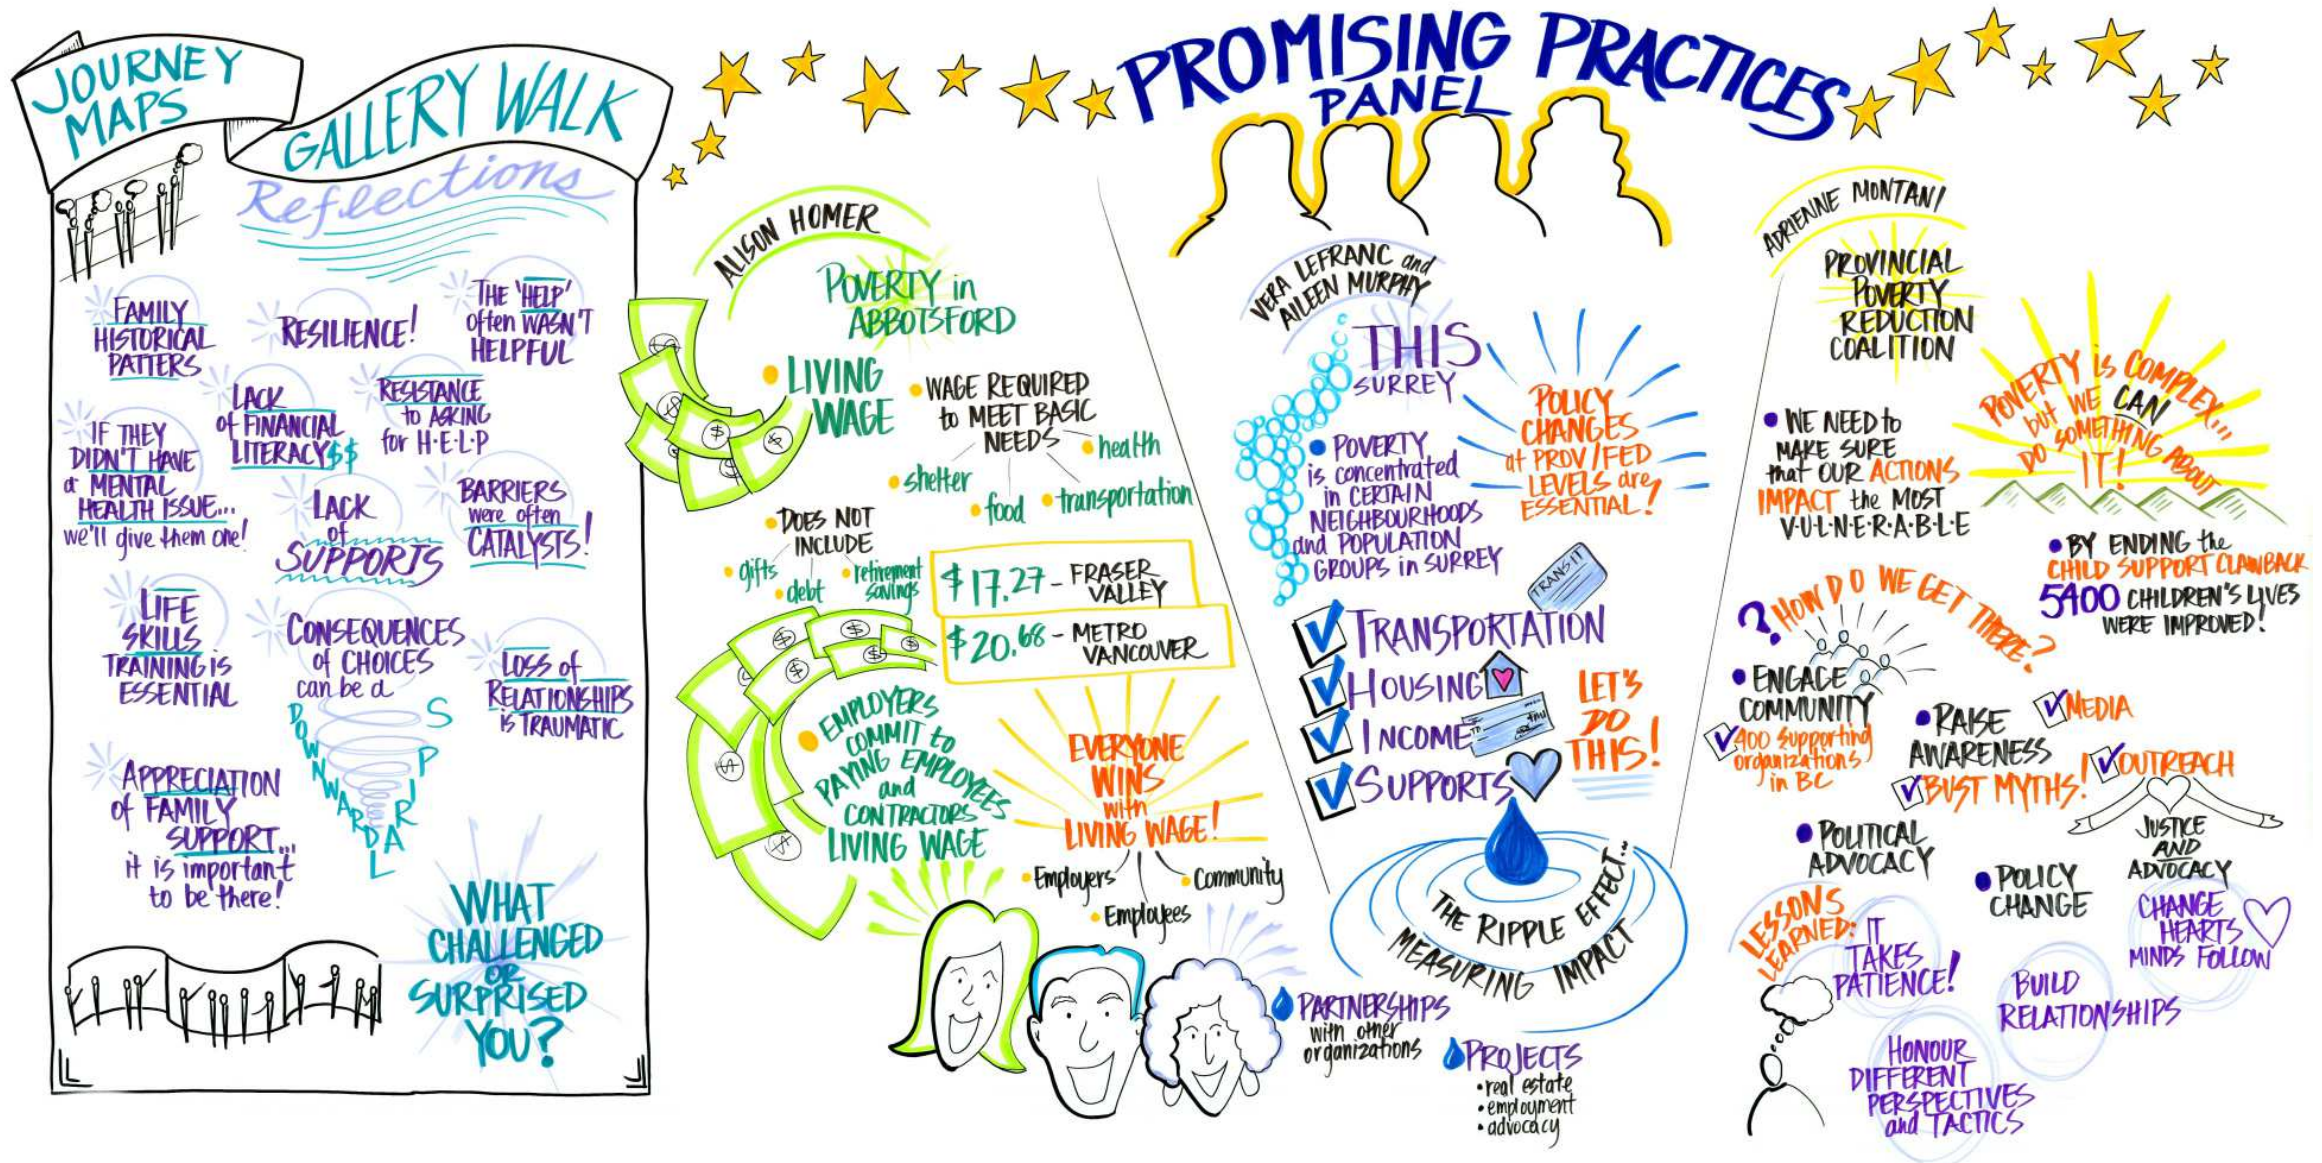 JOURNEY
MAPS
GALLERY WALK
Reflections
FAMILY
HISTORICAL
PATTERS
RESILIENCE!
THE 'HELP'
often WASN'T
HELPFUL
LACK
of FINANCIAL
LITERACY $$
RESISTANCE
to ASKING
for H·E·L·P
IF THEY
DIDN'T HAVE
a MENTAL
HEALTH ISSUE...
we'll give them one!
LACK
of
SUPPORTS
BARRIERS
were often
CATALYSTS!
LIFE
SKILLS
TRAINING IS
ESSENTIAL
CONSEQUENCES
of CHOICES
can be a
DOWNWARD
SPIRAL
LOSS of
RELATIONSHIPS
is TRAUMATIC
APPRECIATION
of FAMILY
SUPPORT...
it is important
to be there!
WHAT
CHALLENGED
OR
SURPRISED
YOU?
PROMISING PRACTICES
PANEL
ALISON HOMER
POVERTY in
ABBOTSFORD
LIVING
WAGE
WAGE REQUIRED
to MEET BASIC
NEEDS
shelter
food
transportation
health
DOES NOT
INCLUDE
gifts
debt
retirement
savings
$17.27 - FRASER
VALLEY
$20.68 - METRO
VANCOUVER
EMPLOYERS
COMMIT to
PAYING EMPLOYEES
and
CONTRACTORS
LIVING WAGE
EVERYONE
WINS
with
LIVING WAGE!
Employers
Employees
Community
VERA LEFRANC and
AILEEN MURPHY
THIS
SURREY
POVERTY
is concentrated
in CERTAIN
NEIGHBOURHOODS
and POPULATION
GROUPS in SURREY
POLICY
CHANGES
at PROV/FED
LEVELS are
ESSENTIAL!
TRANSIT
TRANSPORTATION
HOUSING
INCOME
SUPPORTS
LET'S
DO
THIS!
THE RIPPLE EFFECT...
MEASURING IMPACT
PARTNERSHIPS
with other
organizations
PROJECTS
• real estate
• employment
• advocacy
ADRIENNE MONTANI
PROVINCIAL
POVERTY
REDUCTION
COALITION
POVERTY is COMPLEX...
but WE CAN
DO SOMETHING ABOUT
IT!
WE NEED to
MAKE SURE
that OUR ACTIONS
IMPACT the MOST
V·U·L·N·E·R·A·B·L·E
BY ENDING the
CHILD SUPPORT CLAWBACK
5400 CHILDREN'S LIVES
WERE IMPROVED!
? HOW DO WE GET THERE?
ENGAGE
COMMUNITY
400 supporting
organizations
in BC
RAISE
AWARENESS
MEDIA
OUTREACH
BUST MYTHS!
POLITICAL
ADVOCACY
POLICY
CHANGE
JUSTICE
AND
ADVOCACY
LESSONS
LEARNED:
IT
TAKES
PATIENCE!
CHANGE
HEARTS
MINDS FOLLOW
BUILD
RELATIONSHIPS
HONOUR
DIFFERENT
PERSPECTIVES
and TACTICS